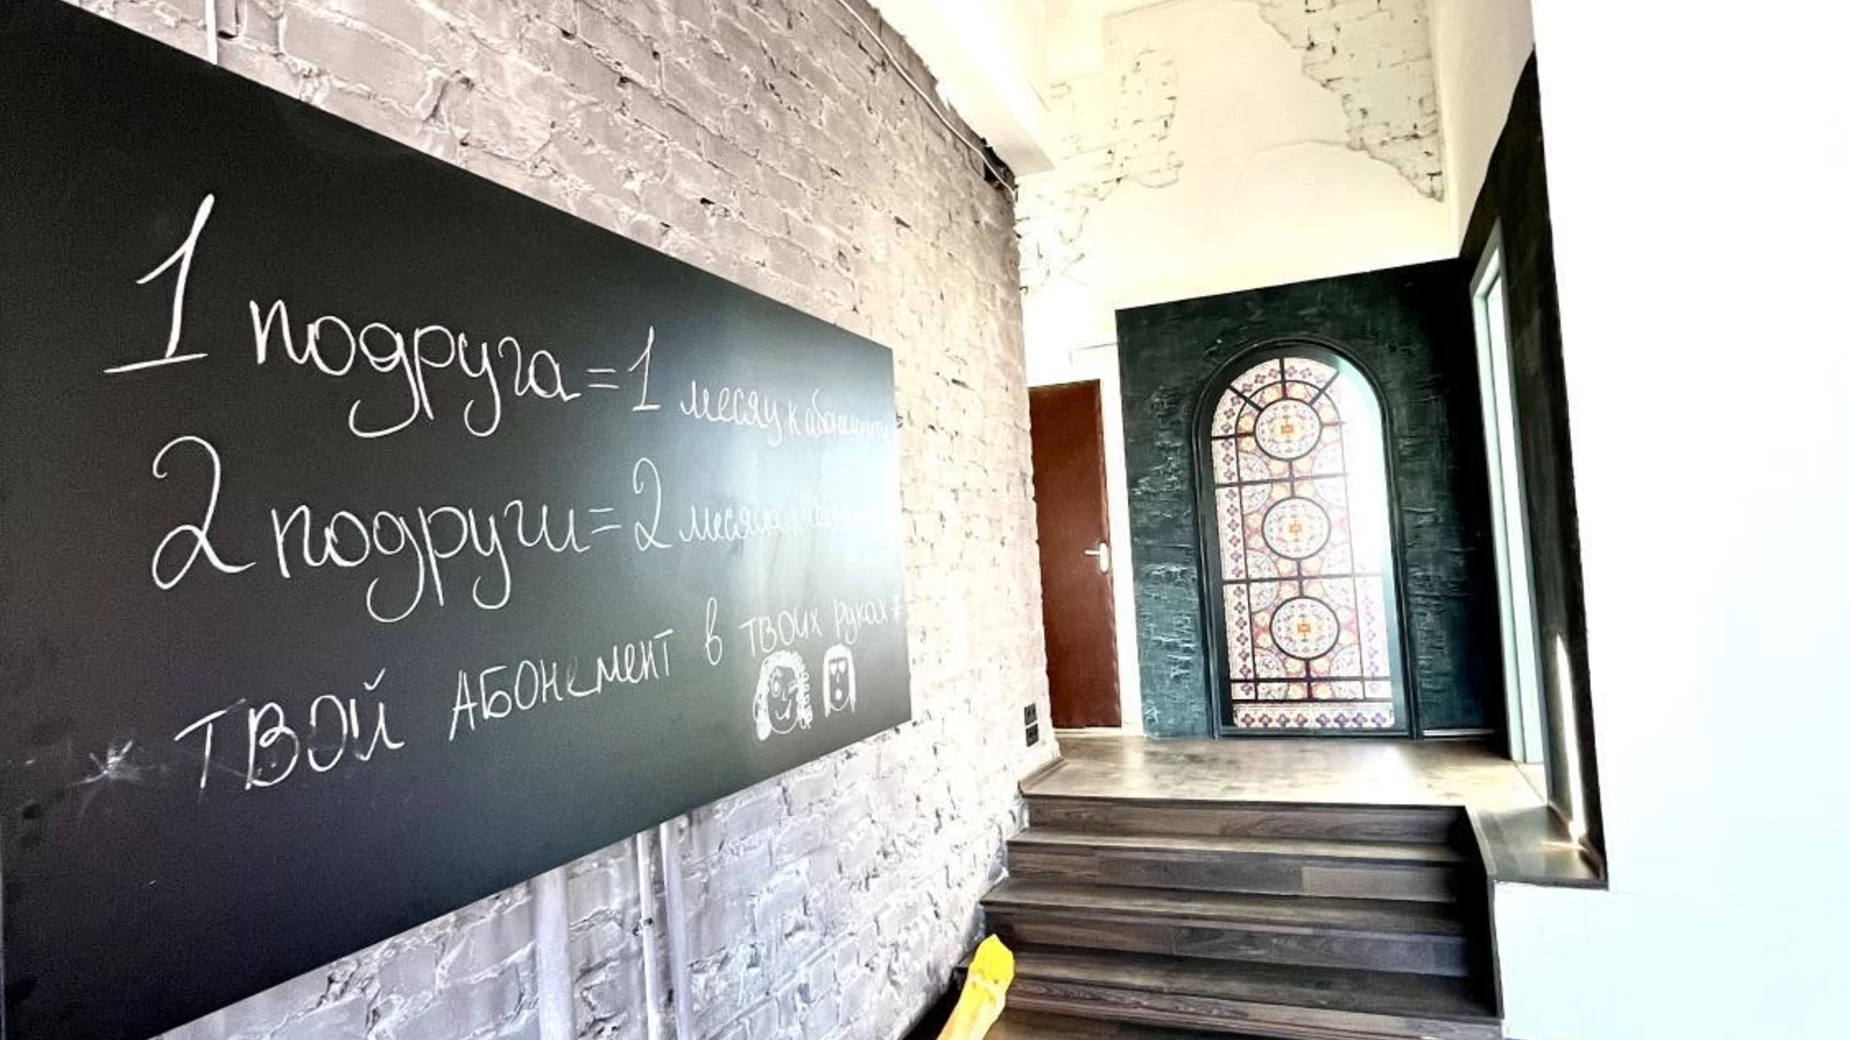 1 подруга = 1 месяц к абонементу
2 подруги = 2 месяца к
* ТВОЙ АБОНЕМЕНТ В ТВОИХ РУКАХ *